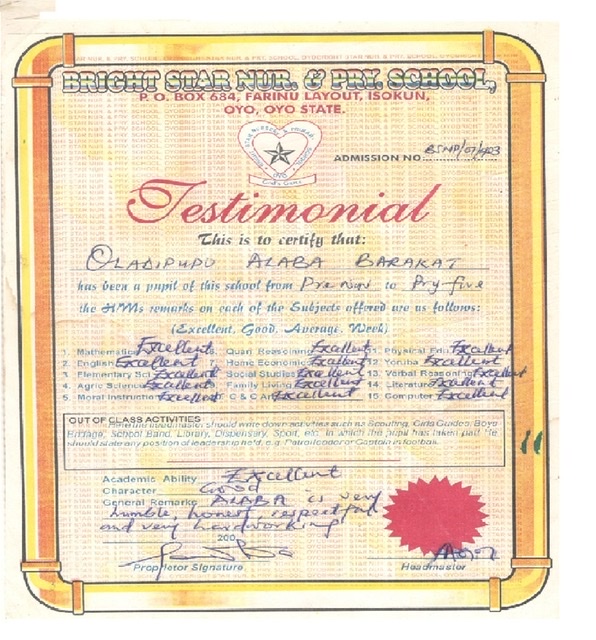 BRIGHT STAR NUR. & PRY. SCHOOL,
P. O. BOX 684, FARINU LAYOUT, ISOKUN,
OYO, OYO STATE.
ADMISSION NO
Testimonial
This is to certify that:
OLADIPUPO ALABA BARAKAT
has been a pupil of this school from Pre Nur to Pry-five
the H/Ms remarks on each of the Subjects offered are us follows:
(Excellent, Good, Average, Week)
1. Mathematics Excellent 6. Quan Reasoning Excellent 11. Physical Edu Excellent
2. English Excellent 7. Home Economic Excellent 12. Yoruba Excellent
3. Elementary Sci Excellent 8. Social Studies Excellent 13. Verbal Reasoning Excellent
4. Agric Science Excellent 9. Family Living Excellent 14. Literature Excellent
5. Moral Instruction Excellent C & C Art Excellent 15. Computer Excellent
OUT OF CLASS ACTIVITIES
should write down activities such as Scouting, Girls Guides, Boys
Brigage, School Band, Library, Dispensary, Sport, etc. in which the pupil has taken part. He
should state any position of leadership held, e.g. Patrol leader or Captain in football.
Academic Ability Excellent
Character Good
General Remarks ALABA is very
humble, honest, respectful
and very hardworking
200
Proprietor Signature
Headmaster